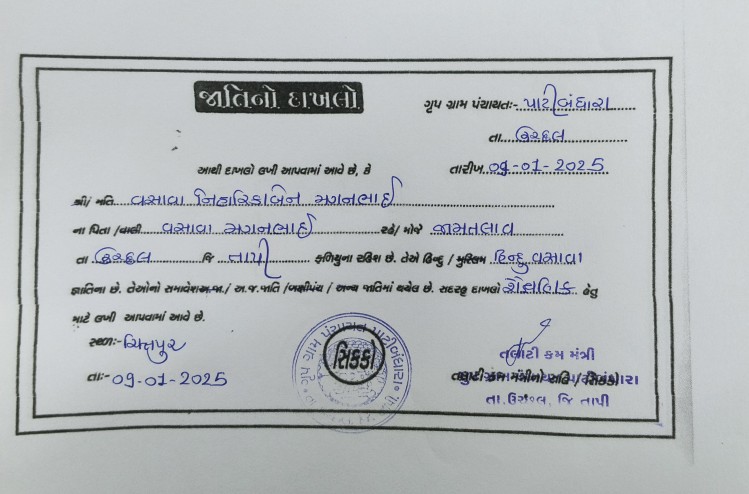 જાતિનો દાખલો
ગૃપ ગ્રામ પંચાયતઃ- પાટીબંધારા
તા. ઉચ્છલ
આથી દાખલો લખી આપવામાં આવે છે, કે
તારીખ 09-01-2025
શ્રી/ મતિ વસાવા નિહારિકાબેન મગનભાઈ
ના પિતા /વાલી વસાવા મગનભાઈ રહે/ મોજે જામતલાવ
તા ઉચ્છલ જિ તાપી ફળિયુના રહિશ છે. તેઓ હિન્દુ / મુસ્લિમ હિન્દુ વસાવા
જ્ઞાતિના છે. તેઓનો સમાવેશઅ.જા./ અ.જ.જાતિ /બક્ષીપંચ / અન્ય જાતિમાં થયેલ છે. સદરહુ દાખલો શૈક્ષણિક હેતુ
માટે લખી આપવામાં આવે છે.
સ્થળઃ-
તાઃ- 09-01-2025
સિક્કો
તલાટી કમ મંત્રી
તલાટી કમ મંત્રીનો સહિ / સિક્કો
તા. ઉચ્છલ, જિ તાપી